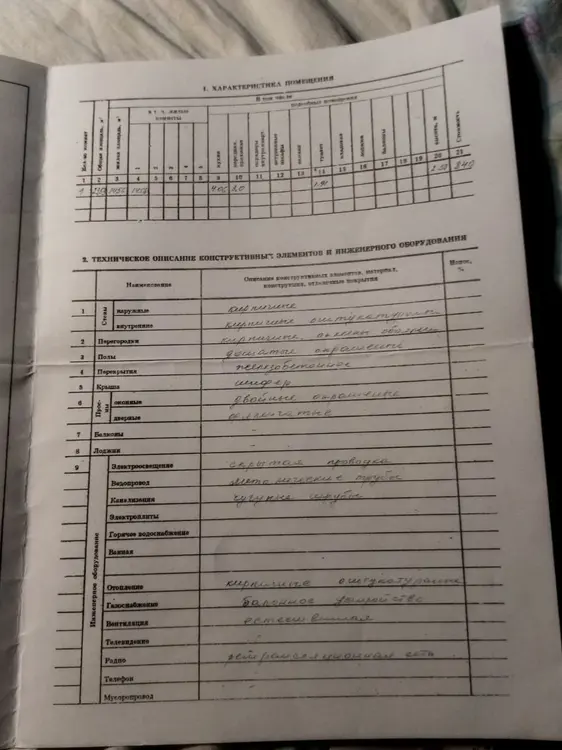 1. ХАРАКТЕРИСТИКА ПОМЕЩЕНИЯ
В том числе
в т. ч. жилые комнаты
Подсобные помещения
Кол-во комнат
Общая площадь, м²
жилая площадь, м²
1 2 3 4 5
кухня
коридоры,
встроенные шкафы
туалет
кладовая
балконы
высота, м
Стоимость
1 2 3 4 5 6 7 8 9 10 11 12 13 14 15 16 17 18 19 20 21
2. ТЕХНИЧЕСКОЕ ОПИСАНИЕ КОНСТРУКТИВНЫХ ЭЛЕМЕНТОВ И ИНЖЕНЕРНОГО ОБОРУДОВАНИЯ
Наименование
Описание конструктивных элементов, материал,
конструкция, отделочные покрытия
Износ, %
1 Стены наружные кирпичные
внутренние кирпичные оштукатурены
2 Перегородки кирпичные, оклеены обоями
3 Полы дощатые окрашенные
4 Перекрытия железобетонное
5 Крыша шифер
6 Прое-мы оконные двойные окрашенные
дверные филенчатые
7 Балконы -
8 Лоджии -
9 Инженерное оборудование
Электроосвещение скрытая проводка
Водопровод металлические трубы
Канализация чугунные трубы
Электроплиты
Горячее водоснабжение
Ванная
Отопление кирпичные оштукатуренные
Газоснабжение балонное устройство
Вентиляция естественная
Телевидение -
Радио ретрансляционная сеть
Телефон -
Мусоропровод -